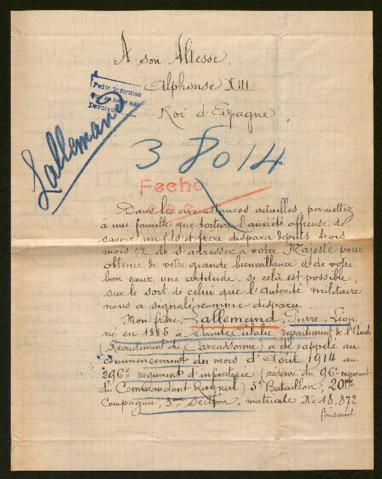 A son Altesse,
Alphonse XIII
Roi d'Espagne,
Pedir informes
Devolver
Lallemand
38014
Fecho
Dans les circonstances actuelles, permettez
à une famille que torture l'anxiété affreuse de
savoir un fils et frère disparu depuis trois
mois 1/2 de s'adresser à votre Majesté pour
obtenir de votre grande bienveillance et de votre
bon cœur une certitude, si cela est possible
sur le sort de celui que l'Autorité militaire
nous a signalé comme disparu.
Mon frère, Lallemand, Pierre, Léon
né en 1885 à département de l'Aude
(Recrutement de Carcassonne) a été rappelé au
commencement du mois d'Août 1914 au
296e régiment d'infanterie (réserve du 96e régiment
du Commandant Ragnal) 5e Bataillon, 20e
Compagnie, 3me Section, matricule No 18,872
faisant